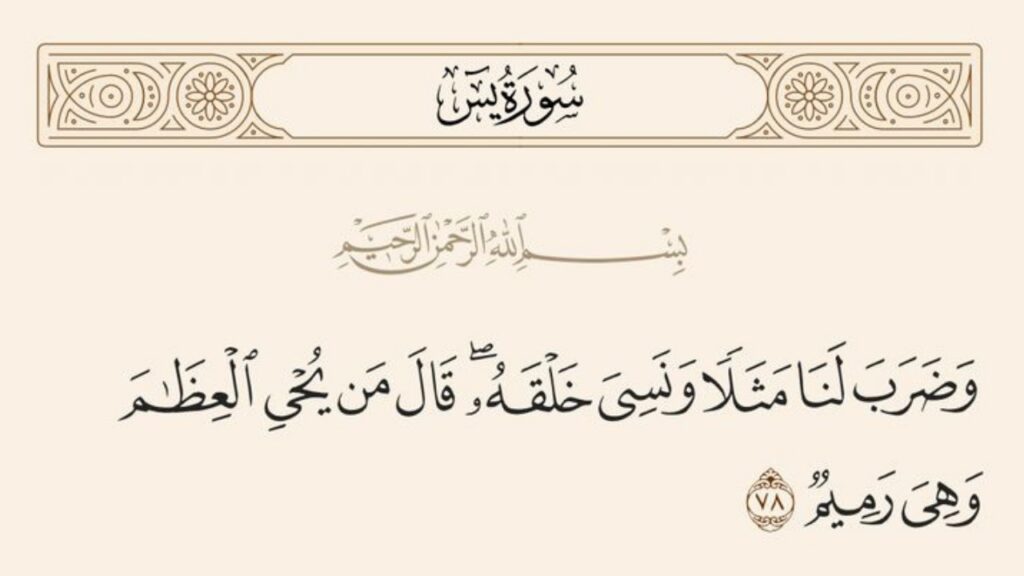 سُورَةُ يسٓ
بِسْمِ ٱللَّهِ ٱلرَّحْمَٰنِ ٱلرَّحِيمِ
وَضَرَبَ لَنَا مَثَلًا وَنَسِىَ خَلْقَهُۥ ۖ قَالَ مَن يُحْىِ ٱلْعِظَٰمَ
وَهِىَ رَمِيمٌ ٧٨